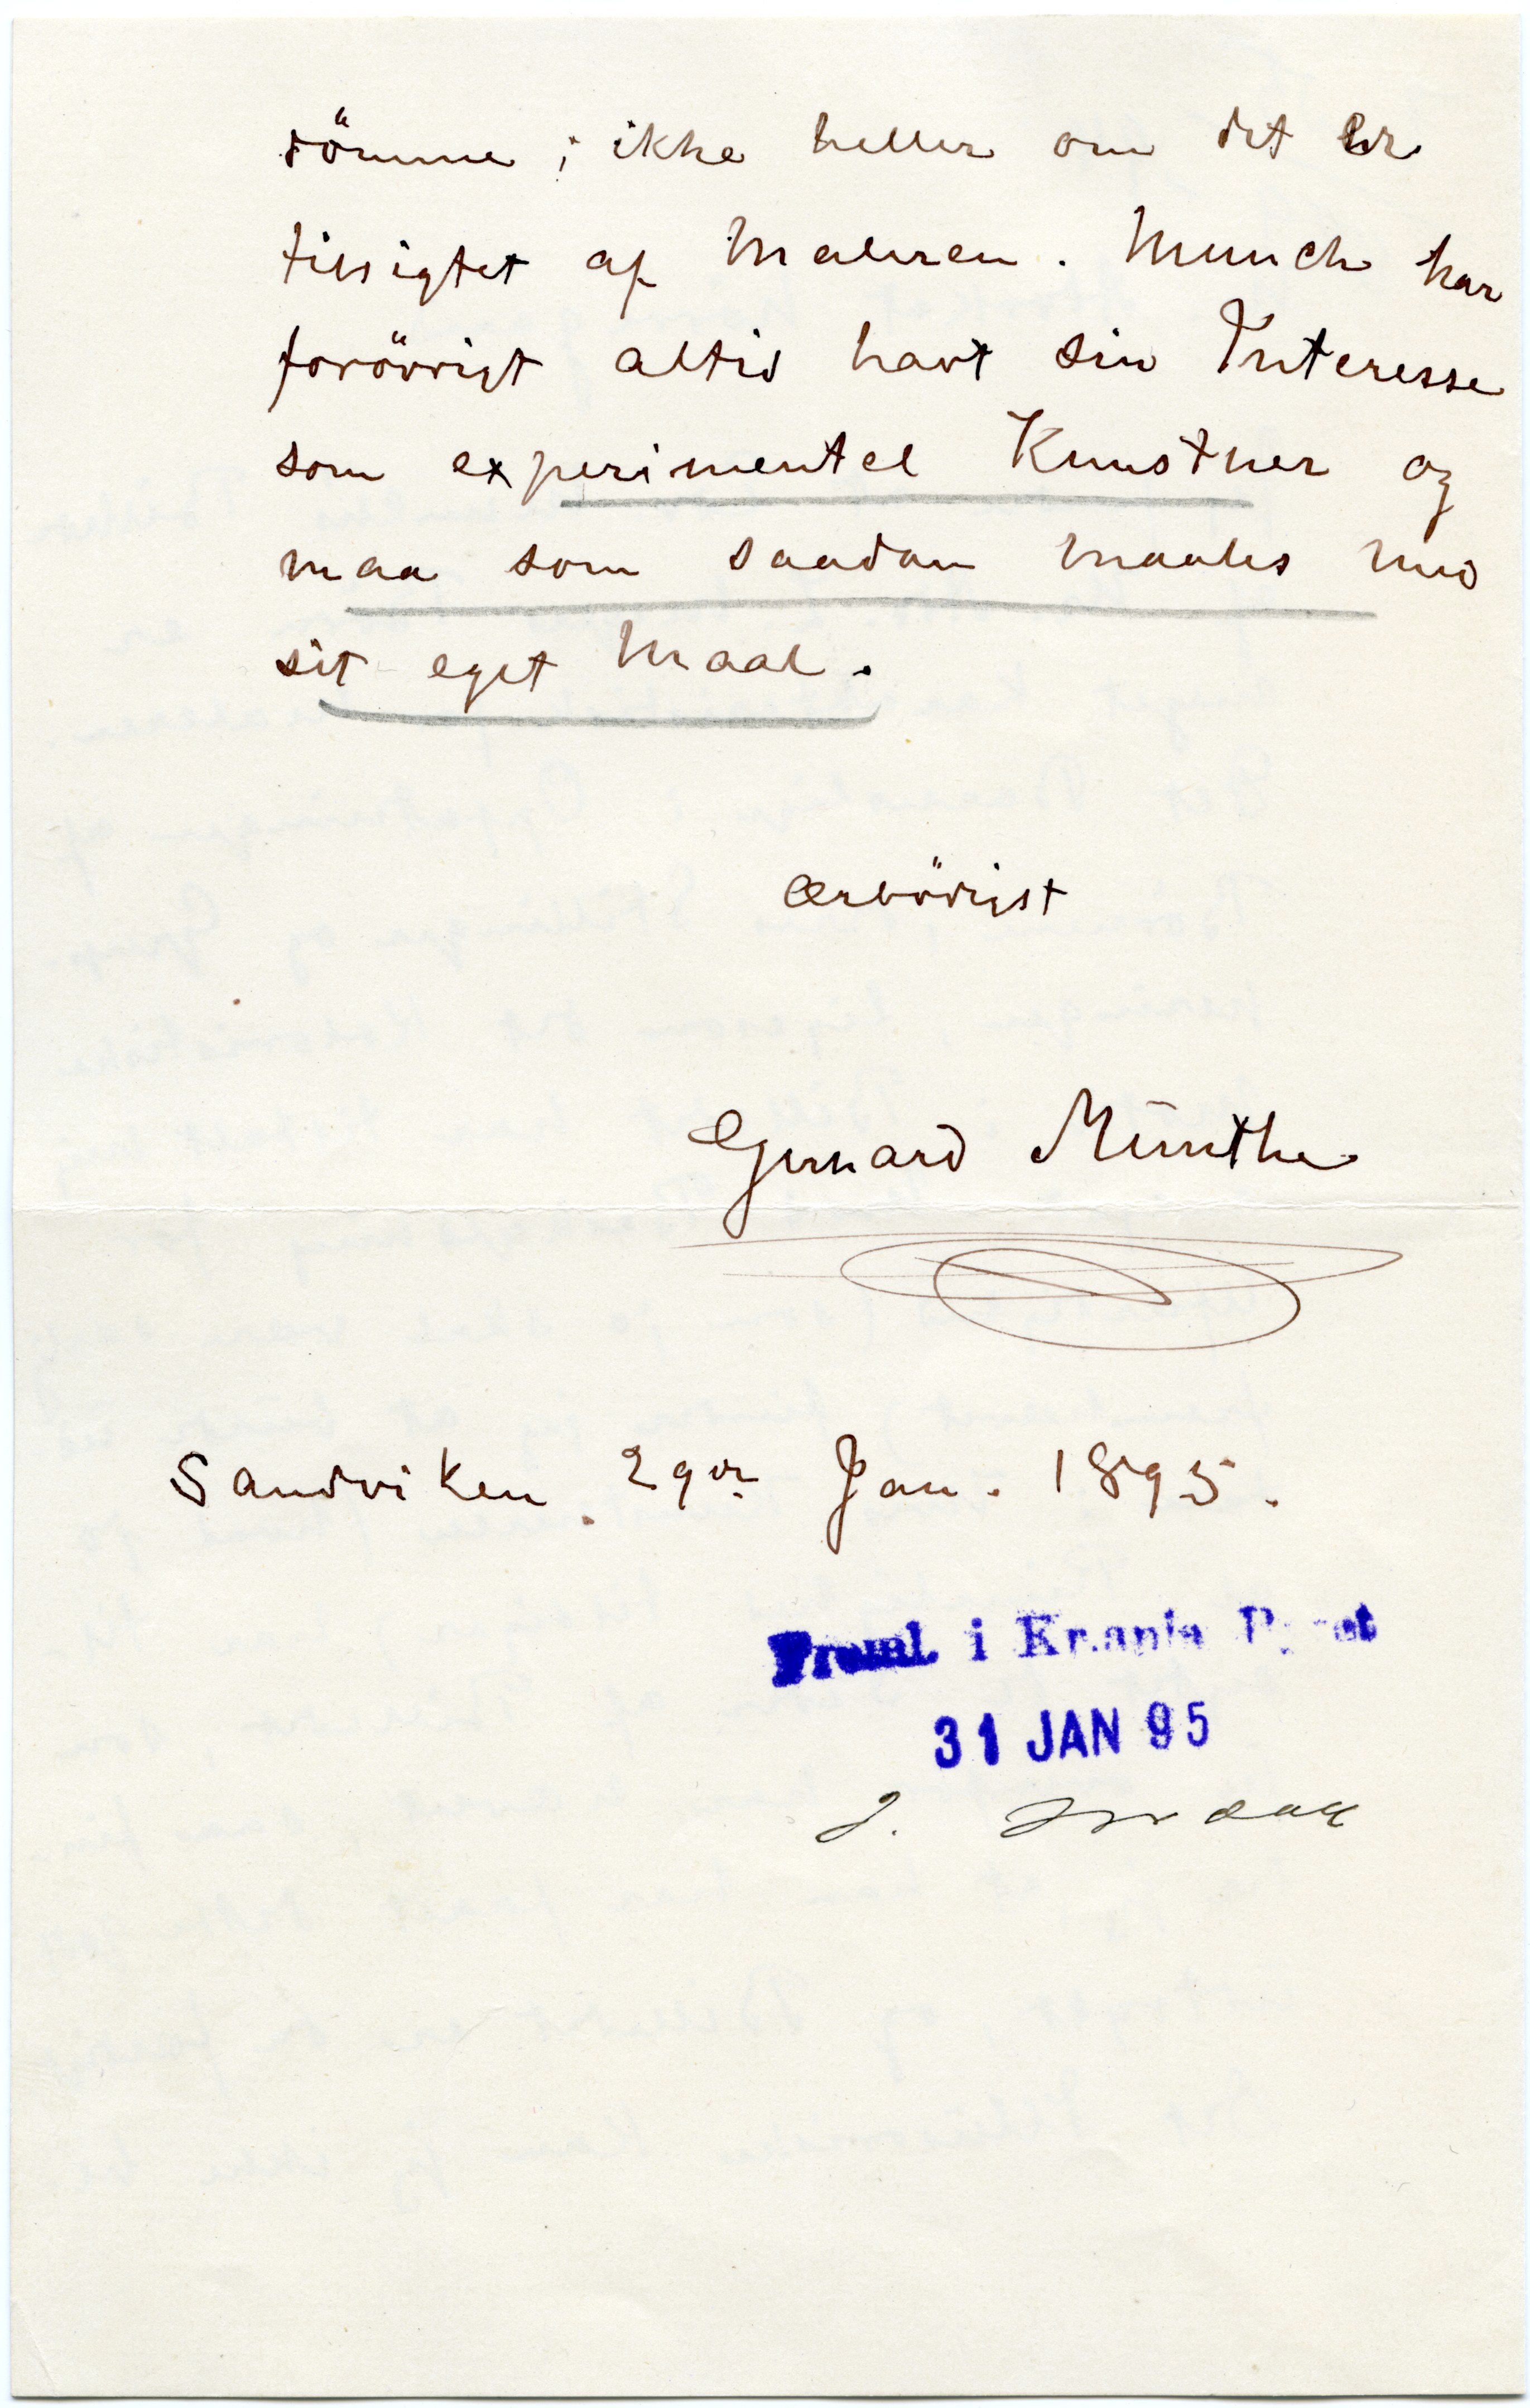 dömme ; ikke heller om det er
tilsigtet af Maleren. Munch har
forövrigt altid havt sin Interesse
som experimentel Kunstner og
maa som saadan maales med
sit eget Maal.
ærbödigst
Gerhard Munthe
Sandviken. 29de Jan. 1895.
Freml. i Kr.ania
31 JAN 95
J.